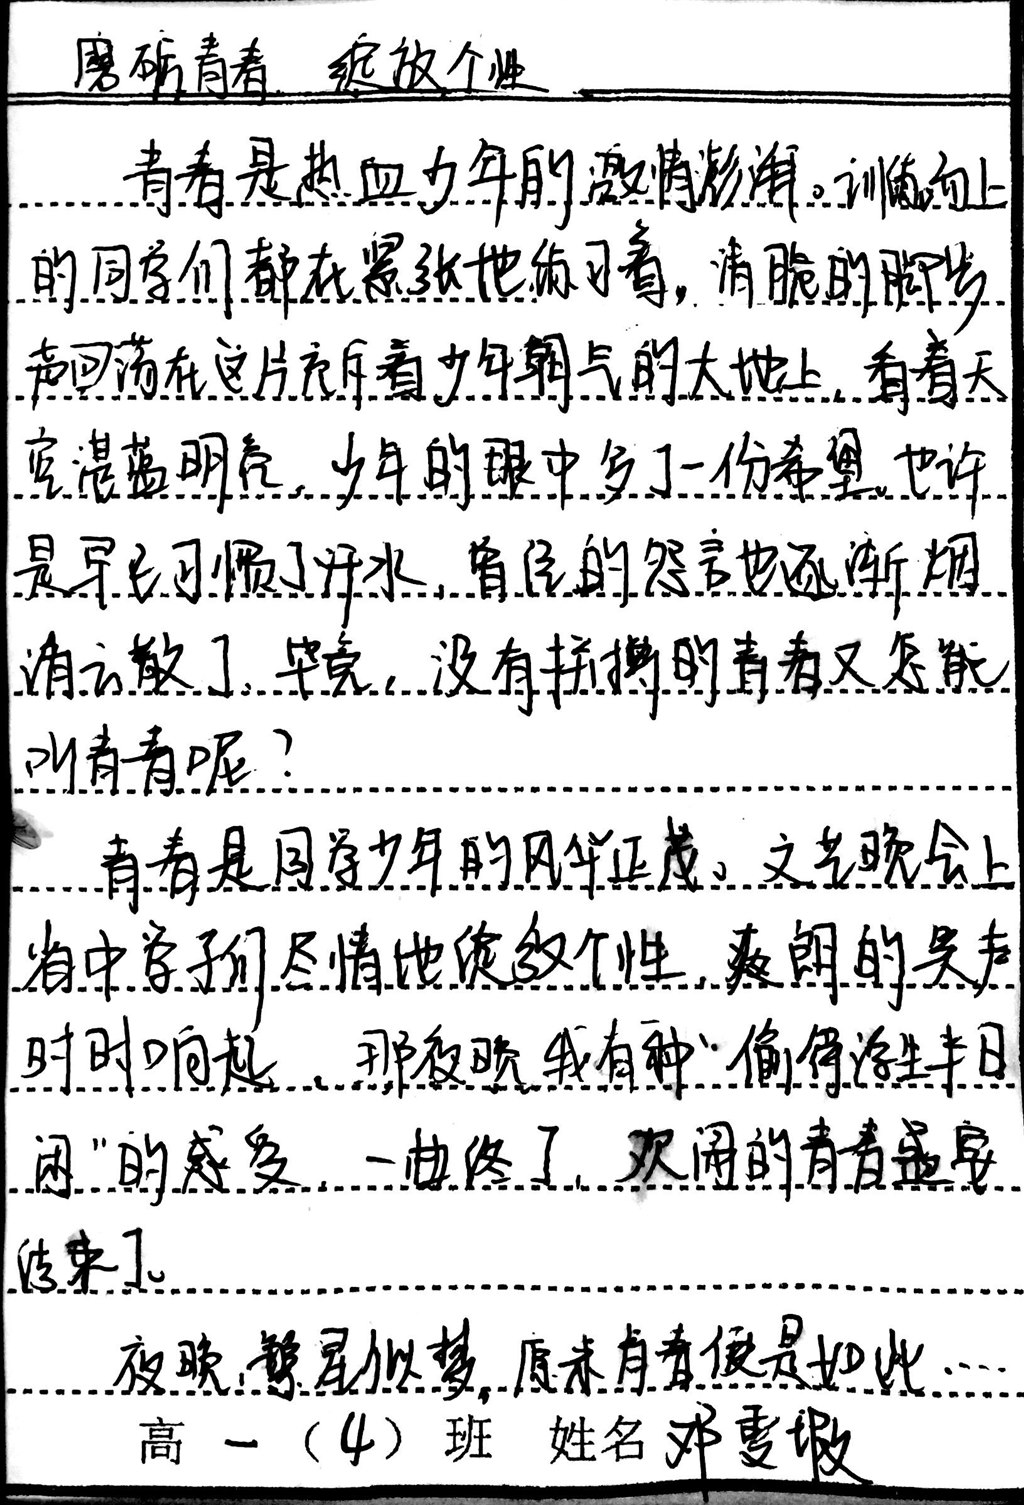 磨砺青春 绽放个性
青春是热血少年的激情澎湃。训练场上
的同学们都在紧张地练习着，清脆的脚步
声回荡在这片充斥着少年朝气的大地上，看着天
空湛蓝明亮，少年的眼中多了一份希望。也许
是早已习惯了汗水，曾经的怨言也逐渐烟
消云散了，毕竟，没有拼搏的青春又怎能
叫青春呢？
青春是同学少年的风华正茂。文艺晚会上
省中学子们尽情地绽放个性，爽朗的笑声
时时响起，那夜晚，我有种“偷得浮生半日
闲”的感受，一曲终了，欢闹的青春盛宴
结束了。
夜晚，繁星似梦，原来青春便是如此……
高一（4）班 姓名 邓雯